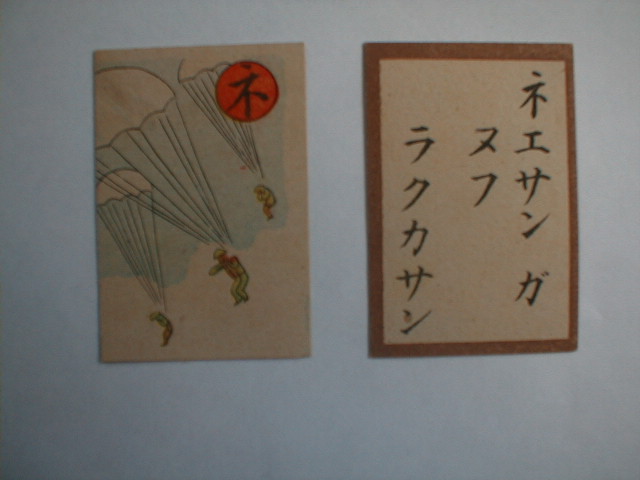 ネ
ネエサン ガ
ヌフ
ラクカサン